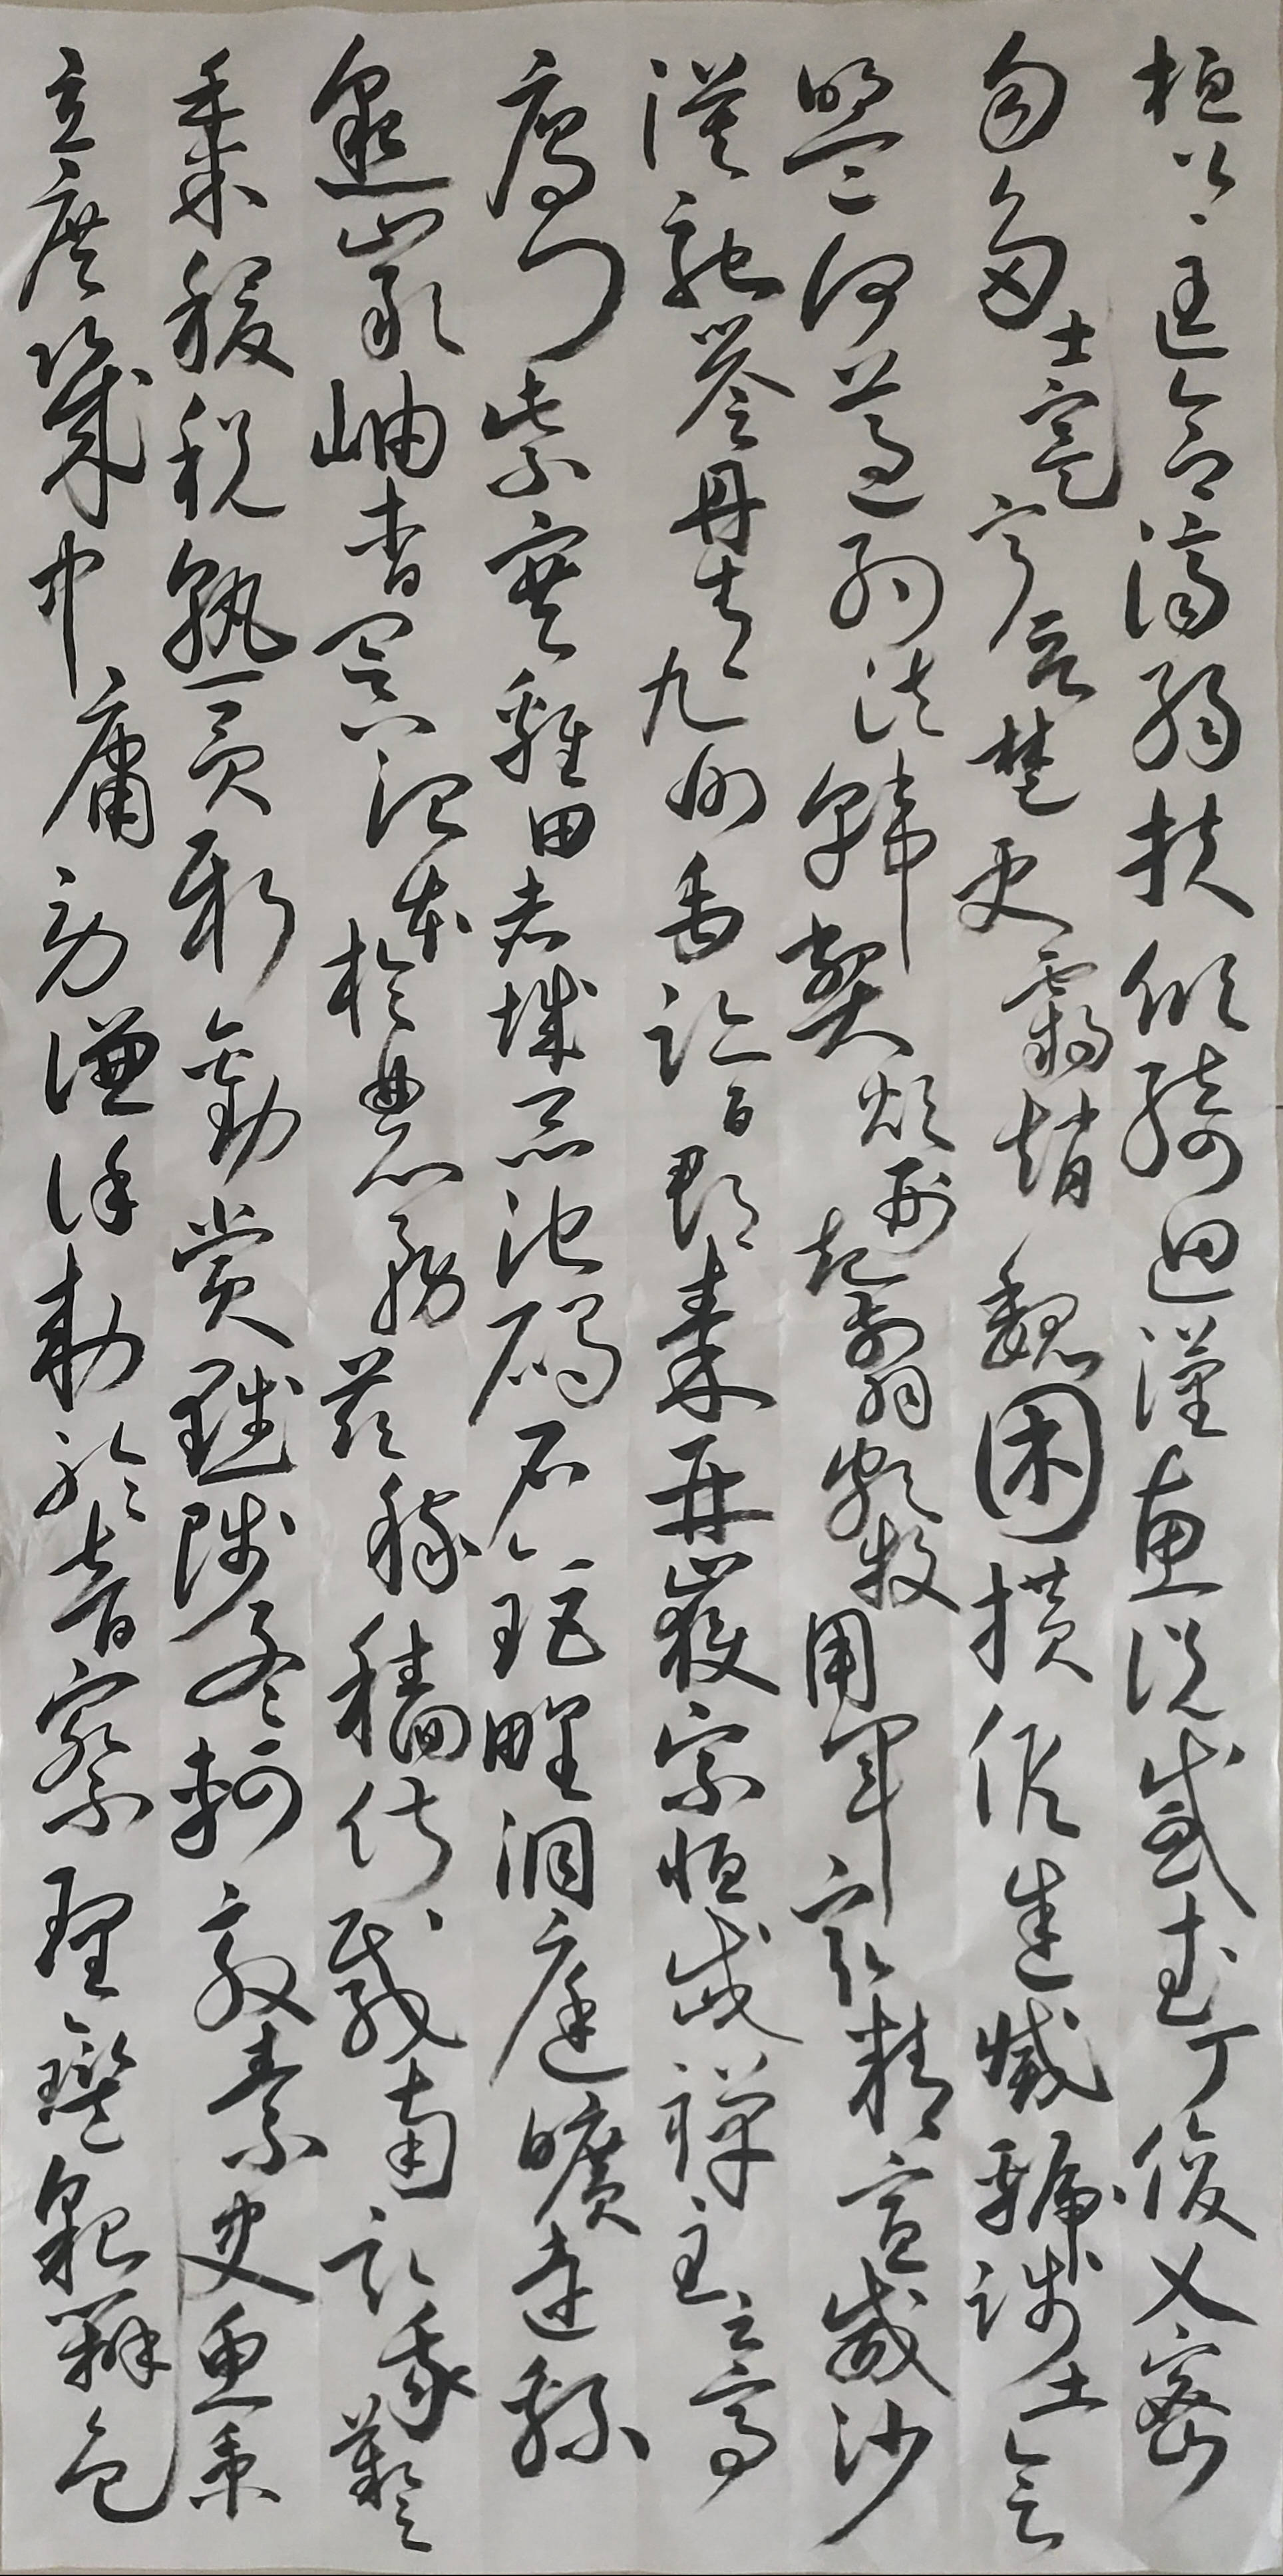 桓公匡合濟弱扶傾綺迴漢惠說感武丁俊乂密
勿多士寔寧晉楚更霸趙魏困橫假途滅虢踐土會
盟何遵約法韓弊煩刑起翦頗牧用軍最精宣威沙
漠馳譽丹青九州禹跡百郡秦并嶽宗恒岱禪主云亭
雁門紫塞雞田赤城昆池碣石鉅野洞庭曠遠緜
邈巖岫杳冥治本於農務茲稼穡俶載南畝我藝
黍稷稅熟貢新勸賞黜陟孟軻敦素史魚秉
直庶幾中庸勞謙謹敕聆音察理鑑貌辨色